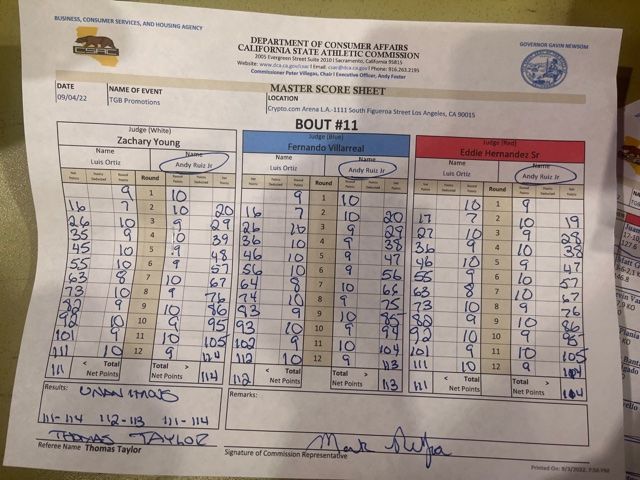 BUSINESS, CONSUMER SERVICES, AND HOUSING AGENCY
GOVERNOR GAVIN NEWSOM
CSAC
DEPARTMENT OF CONSUMER AFFAIRS
CALIFORNIA STATE ATHLETIC COMMISSION
2005 Evergreen Street Suite 2010 | Sacramento, California 95815
Website: www.dca.ca.gov/csac | Email: csac@dca.ca.gov | Phone: 916.263.2195
Commissioner Peter Villegas, Chair | Executive Officer, Andy Foster
MASTER SCORE SHEET
DATE NAME OF EVENT LOCATION
09/04/22 TGB Promotions Crypto.com Arena L.A.-1111 South Figueroa Street Los Angeles, CA 90015
BOUT #11
Judge (White) Judge (Blue) Judge (Red)
Zachary Young Fernando Villarreal Eddie Hernandez Sr
Name Name Name Name Name Name
Luis Ortiz Andy Ruiz Jr Luis Ortiz Andy Ruiz Jr Luis Ortiz Andy Ruiz Jr
Round Round Round
9 1 10 9 1 10 10 1 9
16 7 2 10 20 16 7 2 10 20 17 7 2 10 19
26 10 3 9 29 26 10 3 9 29 27 10 3 9 28
35 9 4 10 39 36 10 4 9 38 36 9 4 10 38
45 10 5 9 48 46 10 5 9 47 46 10 5 9 47
55 10 6 9 57 56 10 6 9 56 55 9 6 10 57
63 8 7 10 67 64 8 7 10 66 63 8 7 10 67
73 10 8 9 76 74 10 8 9 75 73 10 8 9 76
82 9 9 10 86 83 9 9 10 85 82 9 9 10 86
92 10 10 9 95 93 10 10 9 94 92 10 10 9 95
101 9 11 10 105 102 9 11 10 104 101 9 11 10 105
111 10 12 9 114 112 10 12 9 113 111 10 12 9 114
111 < Total Net Points Total > Net Points 114 112 < Total Net Points Total > Net Points 113 111 < Total Net Points Total > Net Points 114
Results: UNANIMOUS
Remarks:
111-114 112-113 111-114
THOMAS TAYLOR
Referee Name Thomas Taylor
Signature of Commission Representative
Printed On: 9/3/2022, 7:58 PM